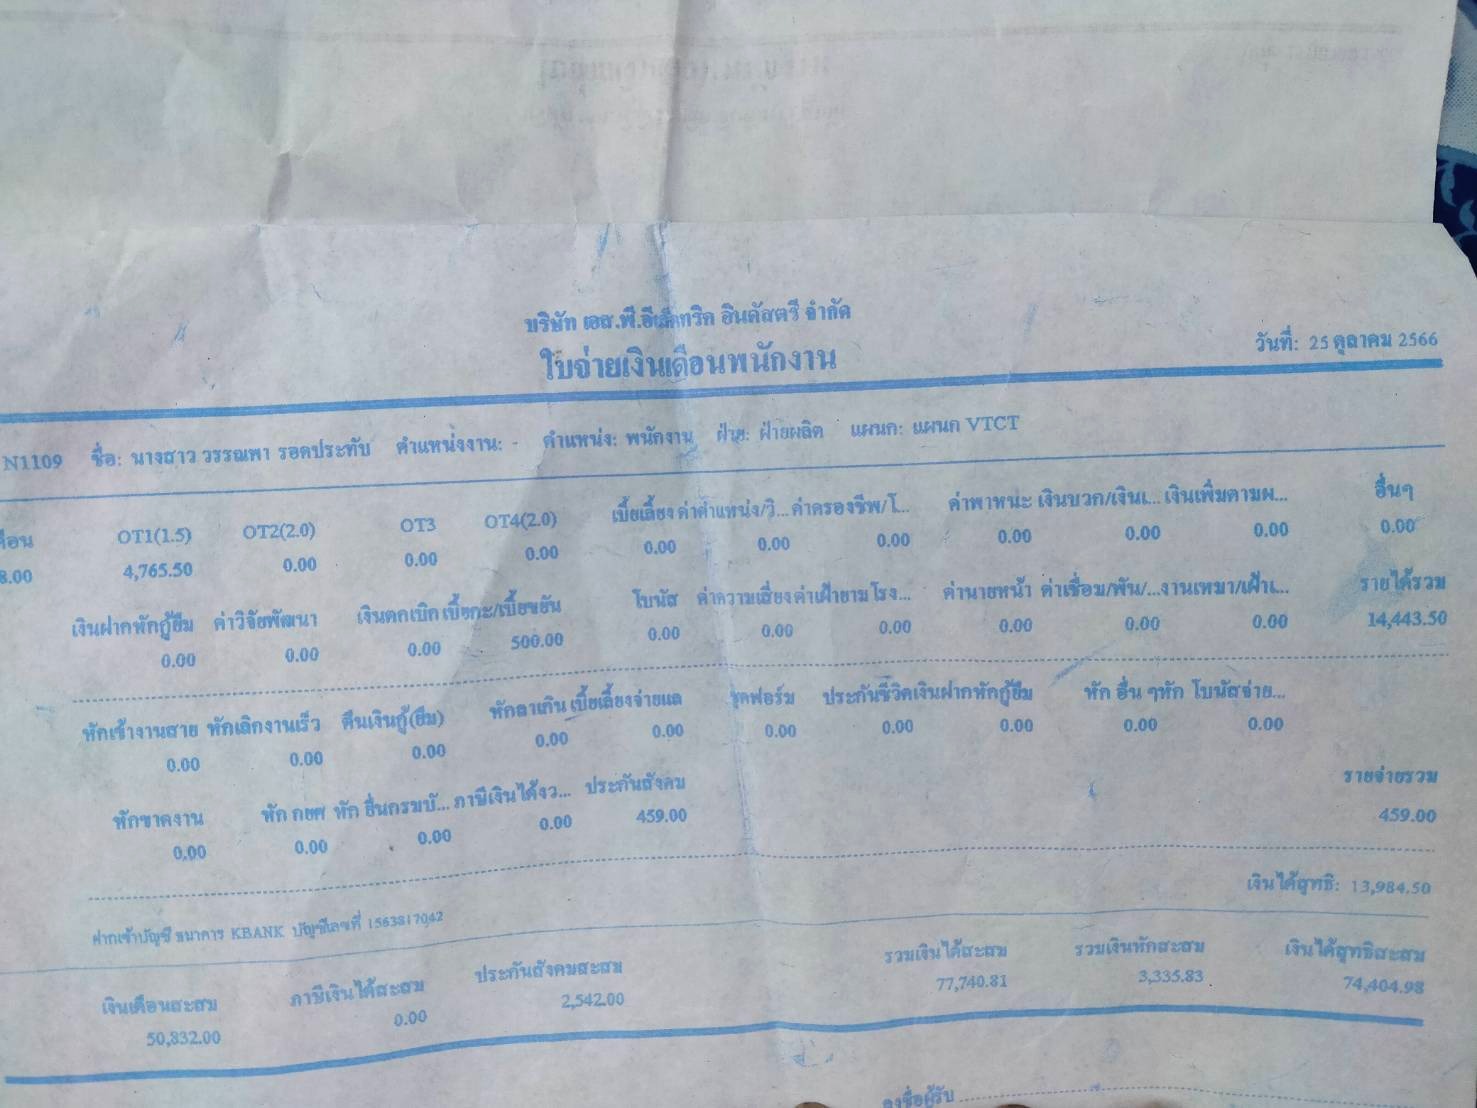 บริษัท เอส.พี.อีเล็คทริค อินดัสตรี จำกัด
ใบจ่ายเงินเดือนพนักงาน
วันที่: 25 ตุลาคม 2566
N1109 ชื่อ: นางสาว วรรณพา รอดประทับ ตำแหน่งงาน: - ตำแหน่ง: พนักงาน ฝ่าย: ฝ่ายผลิต แผนก: แผนก VTCT
OT1(1.5) OT2(2.0) OT3 OT4(2.0) เบี้ยเลี้ยง ค่าตำแหน่ง/วิ... ค่าครองชีพ/โ... ค่าพาหนะ เงินบวก/เงินเ... เงินเพิ่มตามผ... อื่นๆ
8.00 4,765.50 0.00 0.00 0.00 0.00 0.00 0.00 0.00 0.00 0.00 0.00
เงินฝากหักกู้ยืม ค่าวิจัยพัฒนา เงินตกเบิก เบี้ยกะ/เบี้ยขยัน โบนัส ค่าความเสี่ยง ค่าเฝ้ายามโรง... ค่านายหน้า ค่าเชื่อม/พัน/... งานเหมา/เฝ้าเ... รายได้รวม
0.00 0.00 0.00 500.00 0.00 0.00 0.00 0.00 0.00 0.00 14,443.50
หักเข้างานสาย หักเลิกงานเร็ว คืนเงินกู้(ยืม) หักลาเกิน เบี้ยเลี้ยงจ่ายแล ชุดฟอร์ม ประกันชีวิต เงินฝากหักกู้ยืม หัก อื่น ๆ หัก โบนัสจ่าย...
0.00 0.00 0.00 0.00 0.00 0.00 0.00 0.00 0.00 0.00
หักขาดงาน หัก กยศ หัก อื่นกรมบั... ภาษีเงินได้งว... ประกันสังคม รายจ่ายรวม
0.00 0.00 0.00 0.00 459.00 459.00
เงินได้สุทธิ: 13,984.50
ฝากเข้าบัญชี ธนาคาร KBANK บัญชีเลขที่ 1563817042
เงินเดือนสะสม ภาษีเงินได้สะสม ประกันสังคมสะสม รวมเงินได้สะสม รวมเงินหักสะสม เงินได้สุทธิสะสม
50,832.00 0.00 2,542.00 77,740.81 3,335.83 74,404.98
ลงชื่อผู้รับ